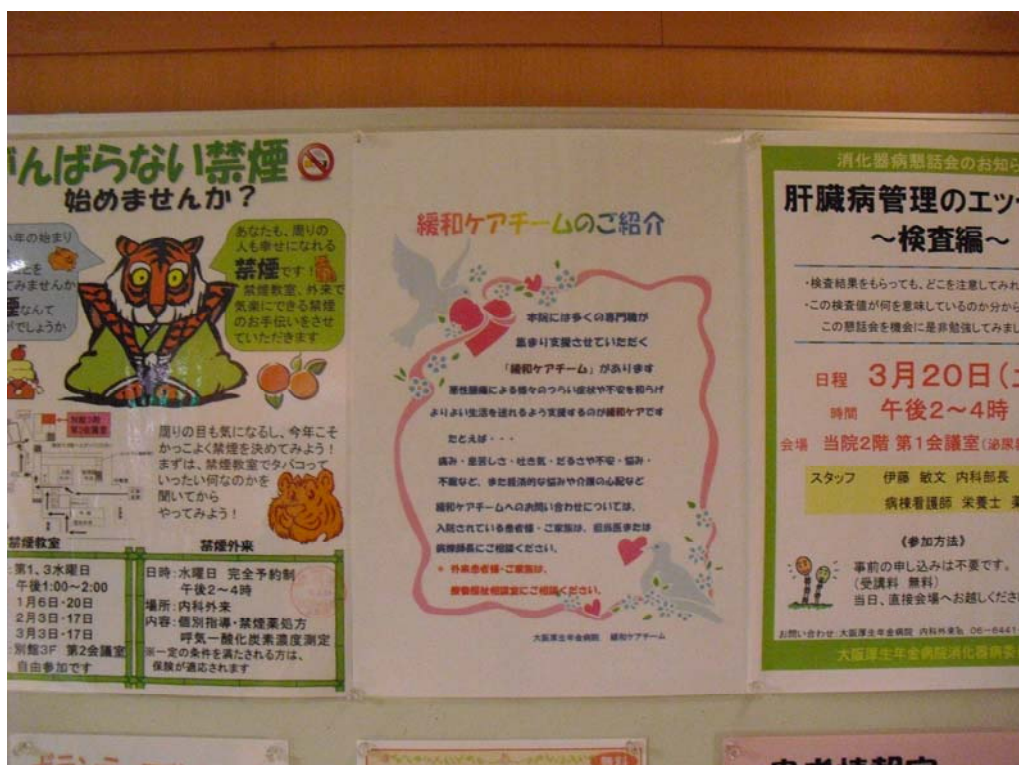 がんばらない禁煙
始めませんか？
年の始まり
てみませんか
なんて
がでしょうか
あなたも、周りの
人も幸せになれる
禁煙です！
禁煙教室、外来で
気楽にできる禁煙
のお手伝いをさせ
ていただきます
別館3階
第2会議室
周りの目も気になるし、今年こそ
かっこよく禁煙を決めてみよう！
まずは、禁煙教室でタバコって
いったい何なのかを
聞いてから
やってみよう！
禁煙教室
：第1、3水曜日
午後1:00～2:00
1月6日・20日
2月3日・17日
3月3日・17日
：別館3F 第2会議室
自由参加です
禁煙外来
日時：水曜日 完全予約制
午後2～4時
場所：内科外来
内容：個別指導・禁煙薬処方
呼気一酸化炭素濃度測定
※一定の条件を満たされる方は、
保険が適応されます
緩和ケアチームのご紹介
本院には多くの専門職が
集まり支援させていただく
「緩和ケアチーム」があります
悪性腫瘍による様々のつらい症状や不安を和らげ
よりよい生活を送れるよう支援するのが緩和ケアです
たとえば・・・
痛み・息苦しさ・吐き気・だるさや不安・悩み・
不眠など、また経済的な悩みや介護の心配など
緩和ケアチームへのお問い合わせについては、
入院されている患者様・ご家族は、担当医または
病棟師長にご相談ください。
* 外来患者様・ご家族は、
医療福祉相談室にご相談ください。
大阪厚生年金病院 緩和ケアチーム
消化器病懇話会のお知ら
肝臓病管理のエッ
～検査編～
・検査結果をもらっても、どこを注意してみれ
・この検査値が何を意味しているのか分から
この懇話会を機会に是非勉強してみまし
日程 3月20日(土
時間 午後2～4時
会場 当院2階 第1会議室(泌尿
スタッフ 伊藤 敏文 内科部長
病棟看護師 栄養士 薬
《参加方法》
事前の申し込みは不要です。
(受講料 無料)
当日、直接会場へお越しくださ
お問い合わせ：大阪厚生年金病院 内科外来℡ 06－6441－
大阪厚生年金病院消化器病委